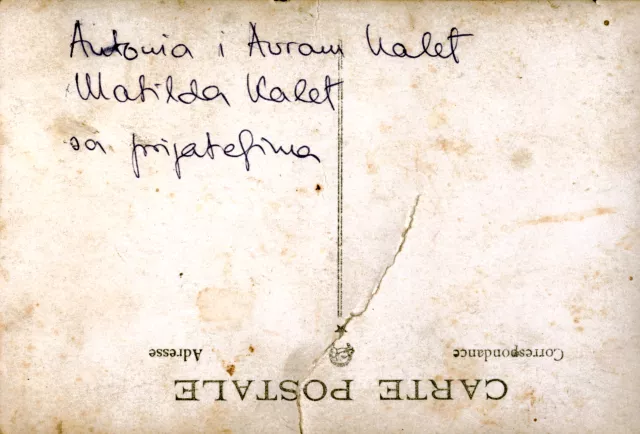 Antonia i Avram Kalef
Matilda Kalef
sa prijateljima
Adresse
Correspondance
CARTE POSTALE